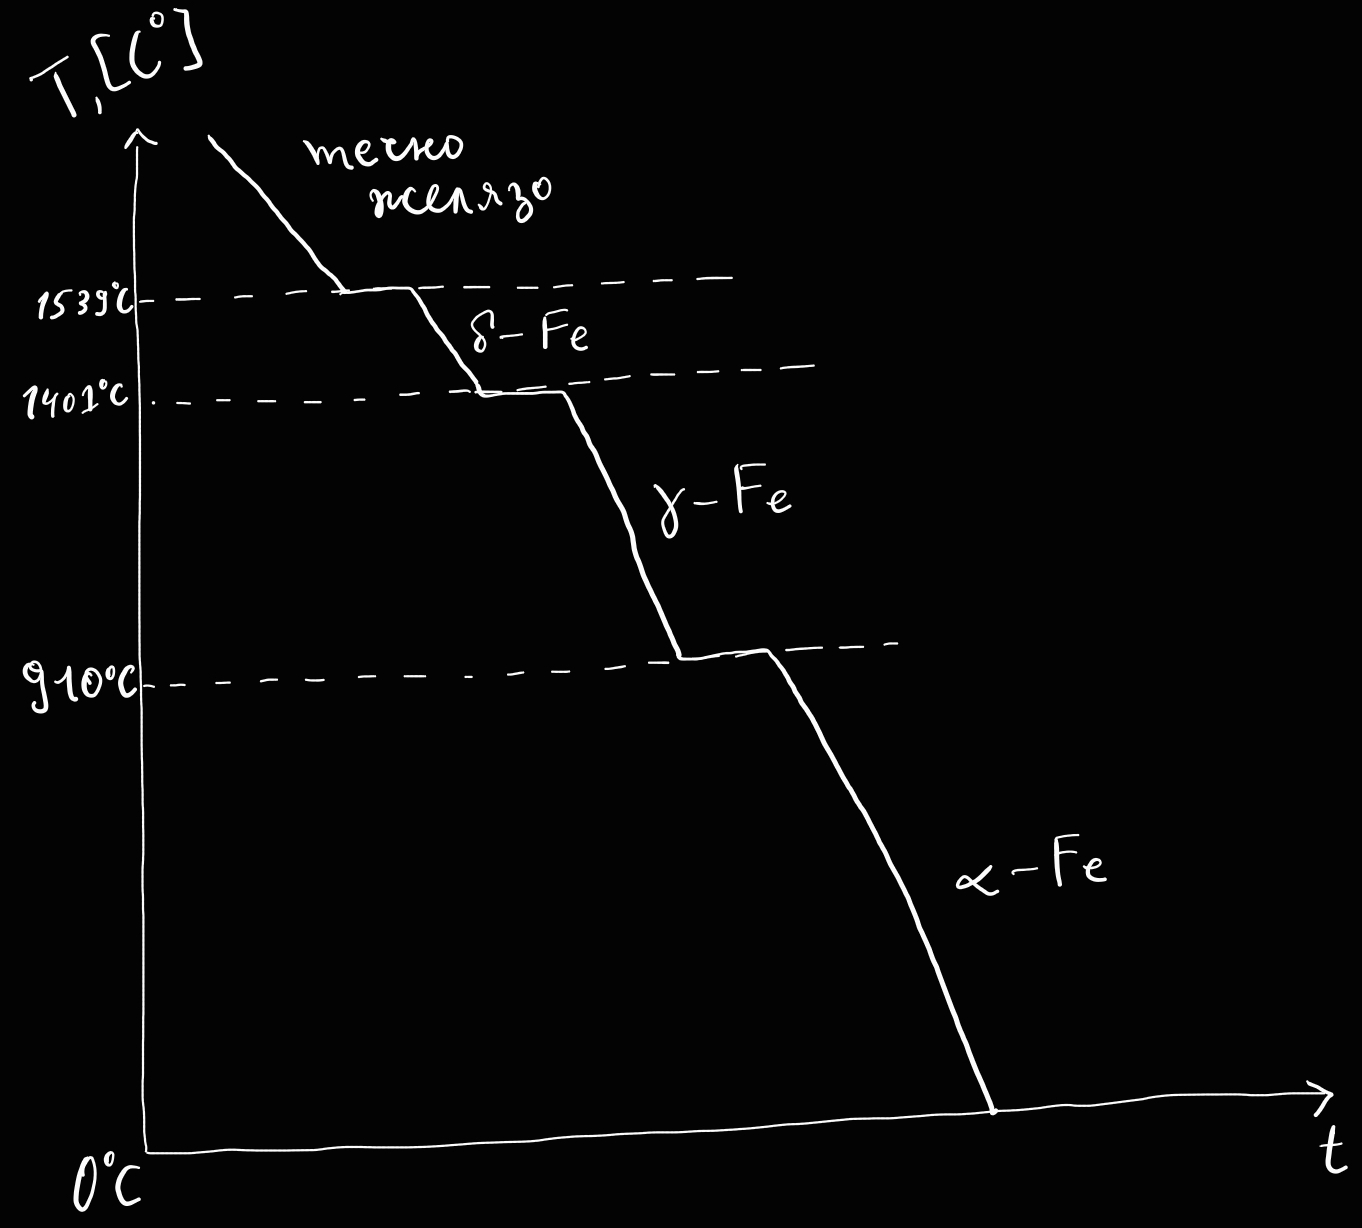 T,[C°]
течно
желязо
1539°C
δ-Fe
1401°C
γ-Fe
910°C
α-Fe
0°C
t